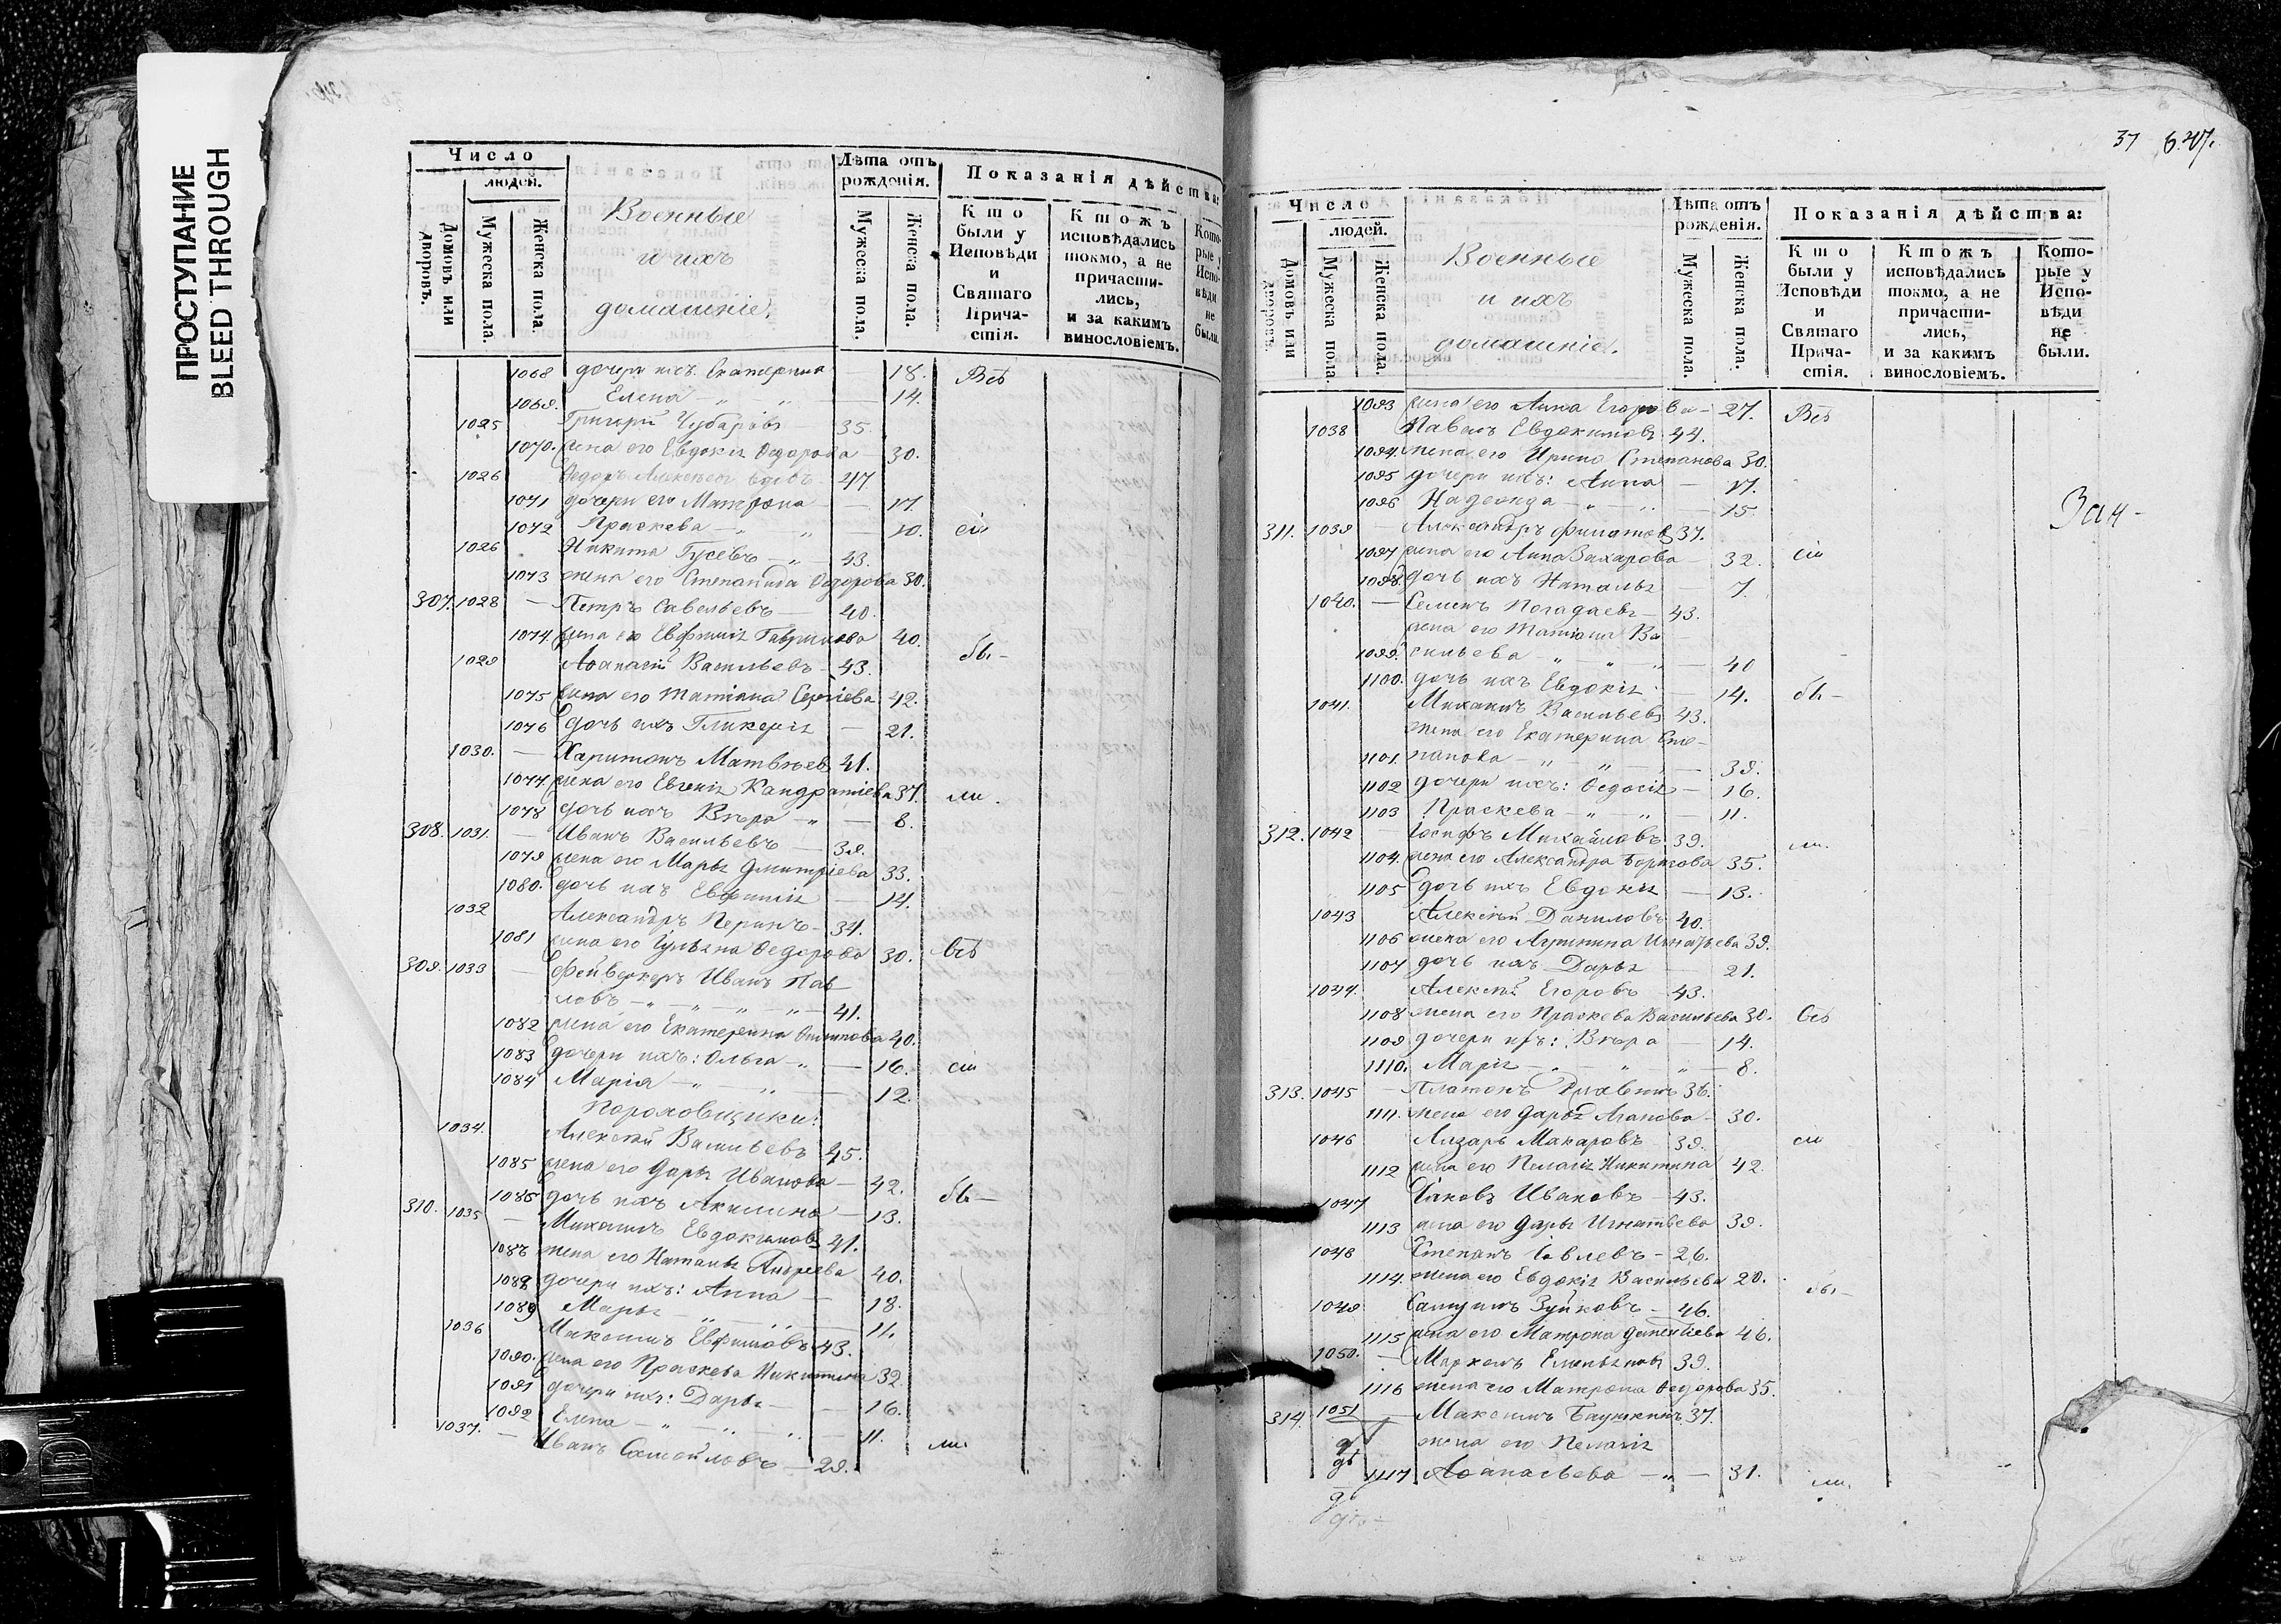 ПРОСТУПАНИЕ
BLEED THROUGH
Число
людей.
Домовъ или дворовъ.
Мужеска пола.
Женска пола.
Военные
и ихъ
домашніе.
Лѣта отъ рожденія.
Мужеска пола.
Женска пола.
Показанія дѣйства:
Кто были у Исповѣди и Святаго Причастія.
Ктожъ исповѣдались токмо, а не причастились, и за какимъ винословіемъ.
Которые у Исповѣди не были.
1068 дочери ихъ: Екатерина — 18. Всѣ
1069. Елена — „ — „ — 14.
1025 Григорій Чубаровъ — 35.
1070. жена его Евдокія Ѳедорова 30.
1026 Ѳедоръ Алексѣевъ вдовъ 47
1071 дочери его Матрона — 17.
1072 Праскева — „ — „ — 10. сіи
1026 Никита Гусевъ — „ 43.
1073 жена его Степанида Ѳедорова 30.
307. 1028 — Петръ Савельевъ — 40.
1074. жена его Евфимія Гаврилова 40.
1029 Аѳанасій Васильевъ — 43. бы-
1075 жена его Татіана Сергіева 42.
1076 дочь ихъ Гликерія — 21.
1030. — Харитонъ Матвѣевъ 41.
1077. жена его Евгенія Кандратіева 37. ли.
1078 дочь ихъ Вѣра — „ — 8.
308. 1031. — Иванъ Васильевъ — 39.
1079 жена его Марья Дмитріева 33.
1080. дочь ихъ Евфимія — 14.
1032 Александръ Перинъ — 34.
1081 жена его Ѳедорова 30. всѣ
309. 1033 — Фейверкеръ Иванъ Пав
ловъ — „ — „ — „ — „ — 41.
1082 жена его Екатерина 40.
1083 дочери ихъ: Ольга — „ — 16. сіи
1084 Марія — „ — „ — 12.
Пороховщики:
1034. Алексѣй Васильевъ 45.
1085 жена его Дарья Иванова — 42.
1086 дочь ихъ Акилина — 13. бы-
310. 1035 — Михаилъ Евдокимовъ 41.
1087 жена его Наталья Андреева 40.
1088 дочери ихъ: Анна — 18.
1089 Марья — „ — „ — 11.
1036 Максимъ Евфимовъ 43.
1090. жена его Праскева Никитина 32
1091 дочери ихъ: Дарья — 16.
1092 Елена — „ — „ — „ — 11.
1037. — Иванъ Самойловъ — 29. ли
37 627.
Число
людей.
Домовъ или дворовъ.
Мужеска пола.
Женска пола.
Военные
и ихъ
домашніе.
Лѣта отъ рожденія.
Мужеска пола.
Женска пола.
Показанія дѣйства:
Кто были у Исповѣди и Святаго Причастія.
Ктожъ исповѣдались токмо, а не причастились, и за какимъ винословіемъ.
Которые у Исповѣди не были.
1093 жена его Анна Егорова — 27. Всѣ
1038 Павелъ Евдокимовъ 44.
1094. жена его Ирина Степанова 30.
1095 дочери ихъ: Анна — 17.
1096 Надежда — „ — „ — 15.
311. 1039 — Александръ Филатовъ 37.
1097 жена его Анна Захарова — 32. сіи
1098. дочь ихъ Наталья — 7.
1040. — Семенъ Погадаевъ — 43.
жена его Татіана Ва
1099. сильева — „ — „ — „ — 40
1100. дочь ихъ Евдокія — 14. бы-
1041. Михаилъ Васильевъ 43.
жена его Екатерина Сте-
1101. панова — „ — „ — 39.
1102 дочери ихъ: Ѳедосія — 16.
1103 Праскева — „ — „ — 11.
312. 1042 — Іосифъ Михайловъ 39. ли.
1104. жена его Александра Борисова 35.
1105 дочь ихъ Евдокія — 13.
1043 Алексѣй Даниловъ 40.
1106 жена его Игнатьева 39.
1107 дочь ихъ Дарья — 21.
1044. Алексѣй Егоровъ 43.
1108 жена его Праскева Васильева 30. всѣ
1109 дочери ихъ: Вѣра — 14.
1110. Марія — „ — „ — „ — 8.
313. 1045 — Платонъ 36.
1111. жена его Дарья Агапова — 30.
1046 Лазарь Макаровъ 39. сіи
1112 жена его Пелагія Никитина 42.
1047 Іаковъ Ивановъ — 43.
1113 жена его Дарья Игнатьева 39.
1048 Степанъ Іевлевъ — 26.
1114. жена его Евдокія Васильева 20. бы-
1049 Самуилъ Зуйковъ — 46.
1115 жена его Матрона 46.
1050. — Маркелъ Емельяновъ 39.
1116 жена его Матрона Ѳедорова 35.
314. 1051 — Максимъ Баушкинъ 37.
жена его Пелагія
1117 Аѳанасьева — „ — 31. ли.